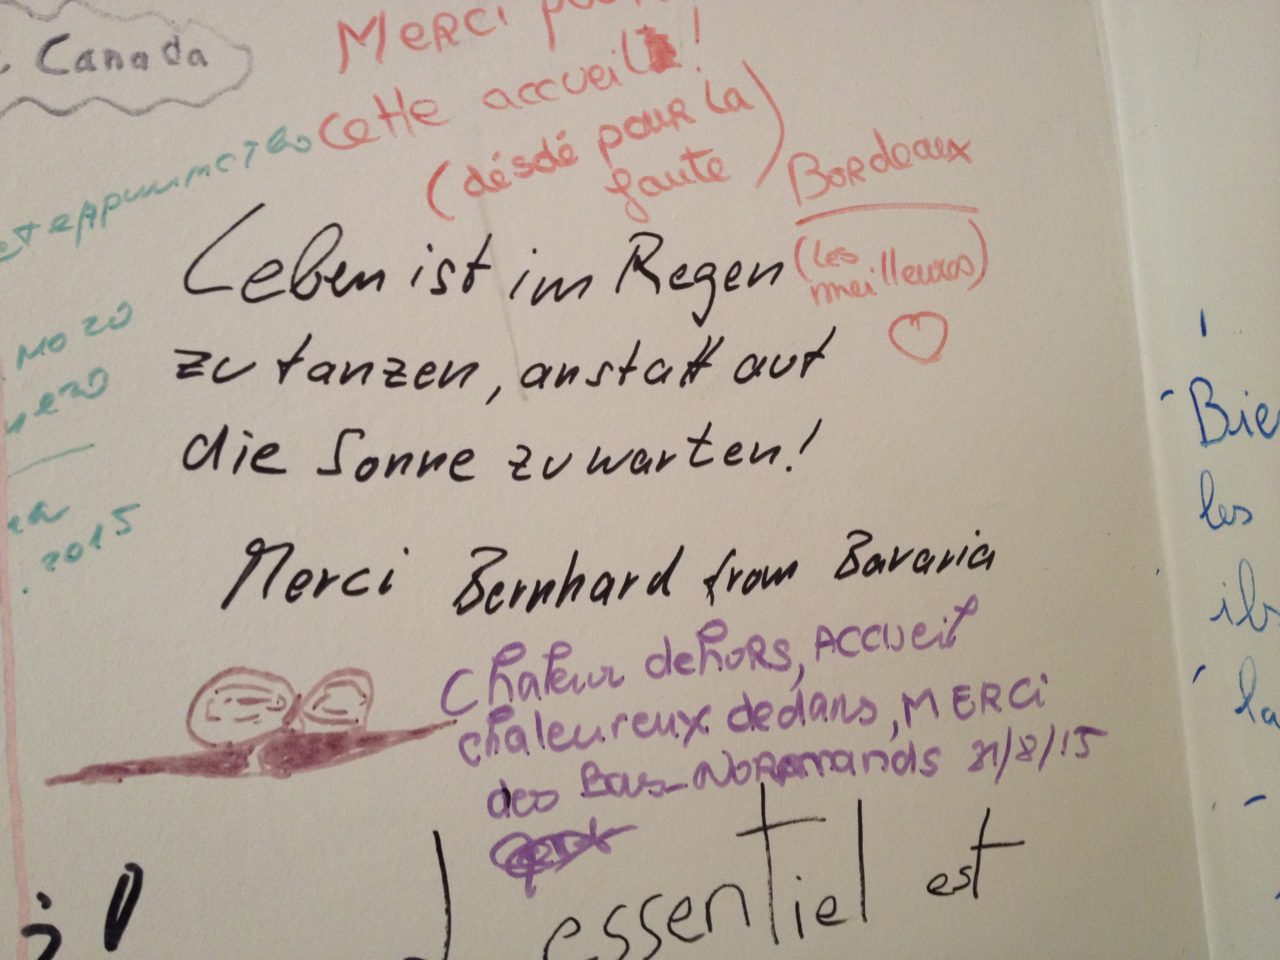 Canada
Merci
cette accueil !
(désdé pour la
faute)
Bordeaux
(les
meilleurs)
Leben ist im Regen
zu tanzen, anstatt auf
die Sonne zu warten!
Merci Bernhard from Bavaria
2015
Chaleur dehors, Accueil
chaleureux dedans, MERCi
des Bas-Normands 21/8/15
L'essentiel est
Bie
les
ils
la